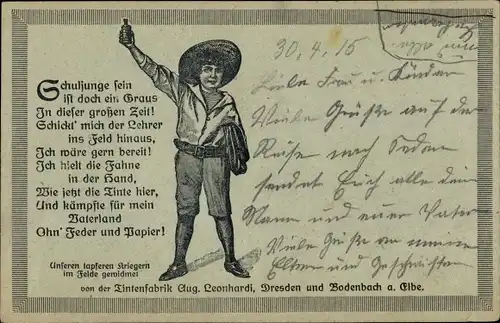 Schuljunge sein
ist doch ein Graus
In dieser großen Zeit!
Schickt' mich der Lehrer
ins Feld hinaus,
Ich wäre gern bereit!
Ich hielt die Fahne
in der Hand,
Wie jetzt die Tinte hier,
Und kämpfte für mein
Vaterland
Ohn' Feder und Papier!
Unseren tapferen Kriegern
im Felde gewidmet
von der Tintenfabrik Aug. Leonhardi, Dresden und Bodenbach a. Elbe.
30.4.15
Liebe Frau u. Kinder
Viele Grüße auf der
Reise nach Sedan
sendet Euch alle dein
Mann und euer Vater
Viele Grüße an meine
Eltern und Geschwister